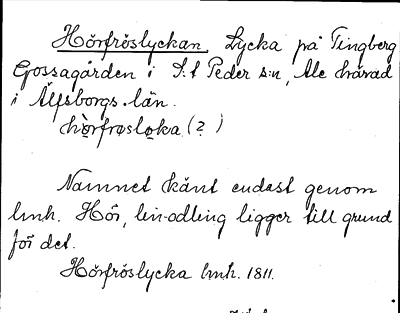 Hörfröslyckan, Lycka på Tingberg
Gossagården i S:t Peder s:n, Ale härad
i Älfsborgs län.
hörfrøsløka (?)
Namnet känt endast genom
lmh. Hör, lin-odling ligger till grund
för det.
Hörfröslycka lmh. 1811.